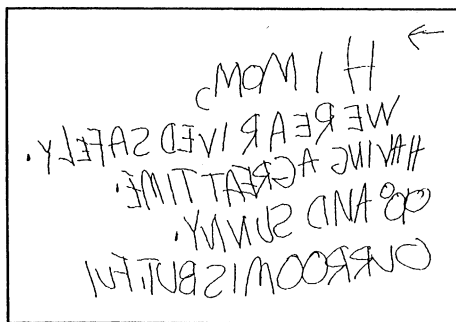 HI MOM,
WE REARIVED SAFELY.
HAVING A GREAT TIME.
90° AND SUNNY.
OUR ROOM IS BUTIFUl